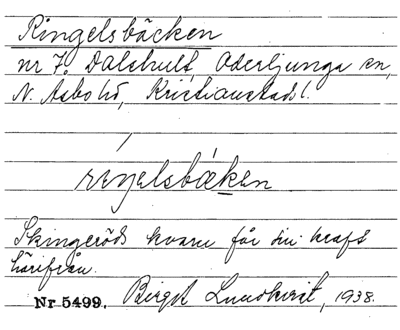 Ringelsbäcken
nr 7. Dalshult, Oderljunga sn,
N. Åsbo hd, Kristianstads l.
reŋelsbækən
Skingeröds kvarn får sin kraft
härifrån.
Nr 5499. Birgit Lundkvist, 1938.